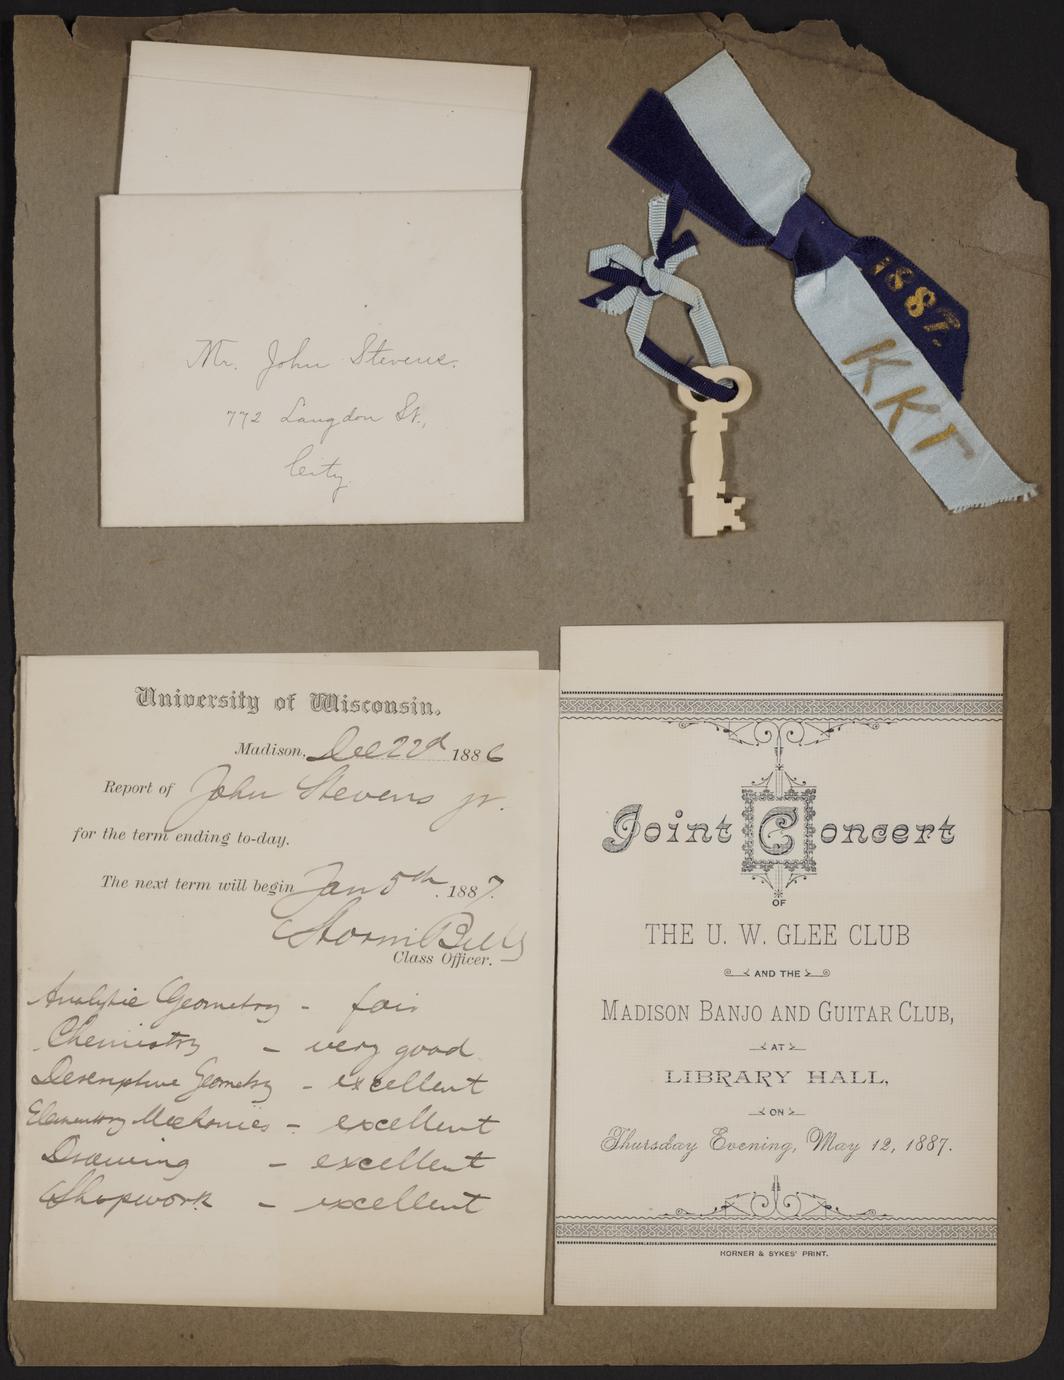 Mr. John Stevens.
772 Langdon St.,
City.
1887.
KKΓ
University of Wisconsin.
Madison, Dec 22d 1886
Report of John Stevens jr.
for the term ending to-day.
The next term will begin Jan 5th. 1887.
Storm Bull
Class Officer.
Analytic Geometry - fair
Chemistry - very good
Descriptive Geometry - excellent
Elementary Mechanics - excellent
Drawing - excellent
Shopwork - excellent
Joint Concert
OF
THE U. W. GLEE CLUB
AND THE
MADISON BANJO AND GUITAR CLUB,
AT
LIBRARY HALL,
ON
Thursday Evening, May 12, 1887.
HORNER & SYKES' PRINT.